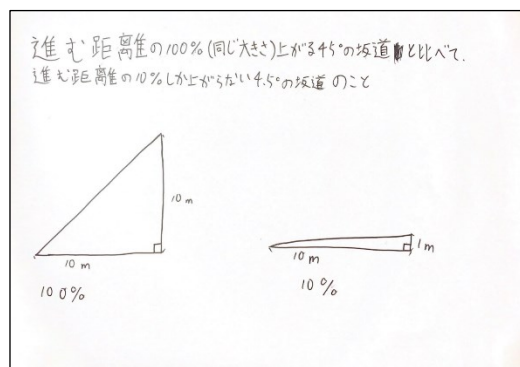 進む距離の100%(同じ大きさ)上がる45°の坂道と比べて、
進む距離の10%しか上がらない4.5°の坂道のこと
10m
10m
100%
1m
10m
10%